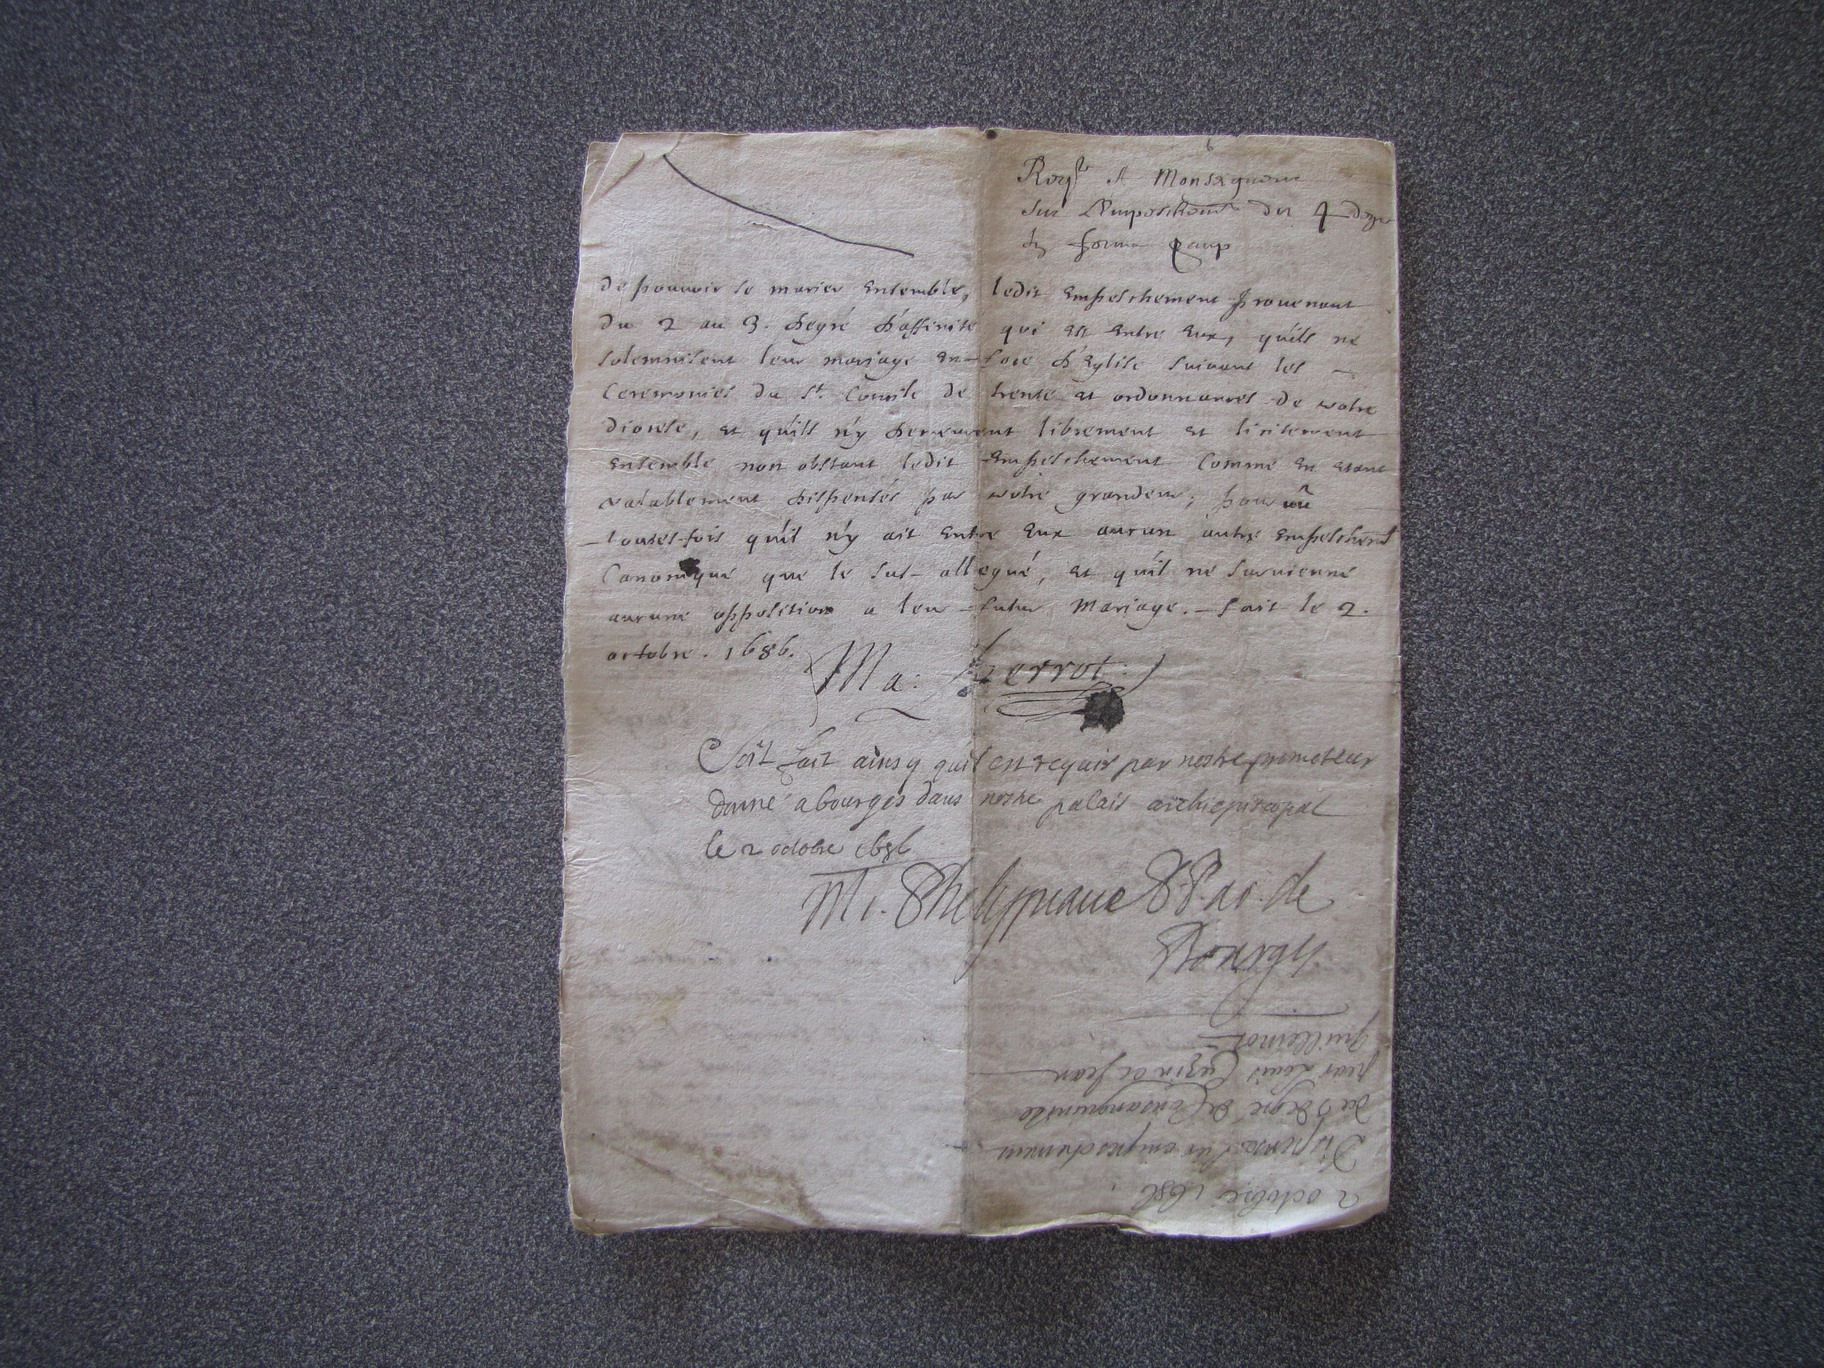 Reqte A Monseigneur
Sur L'empeschemt du 4 degre
de pouvoir se marier ensemble, ledit empeschement prouenant
du 2 au 3. degré d'affinité qui est entre eux, qu'ils ne
solemnisent leur mariage en face d'Eglise suiuant les
ceremonies du St. Concile de trente et ordonnances de votre
diocese, et qu'ils n'y demeurent librement et licitement
ensemble non obstant ledit empeschement comme en etant
valablement dispensés par votre grandeur, pourvû
toutes-fois qu'il n'y ait entre eux aucun autre empeschemt
canonique que le sus-allegué, et qu'il ne suruienne
aucune opposition a leur futur mariage. fait le 2.
octobre. 1686.
Ma: Perrot
Soit fait ainsy quil est requis par nostre promoteur
donné a bourges dans nostre palais archiepiscopal
le 2 octobre 1686
M. Phelypeaux P. P. ar. de
Bourges
2 octobre 1686.
Dispense sur empeschement
du degre de Consanguinité
pour Louis et Jean
guillemot